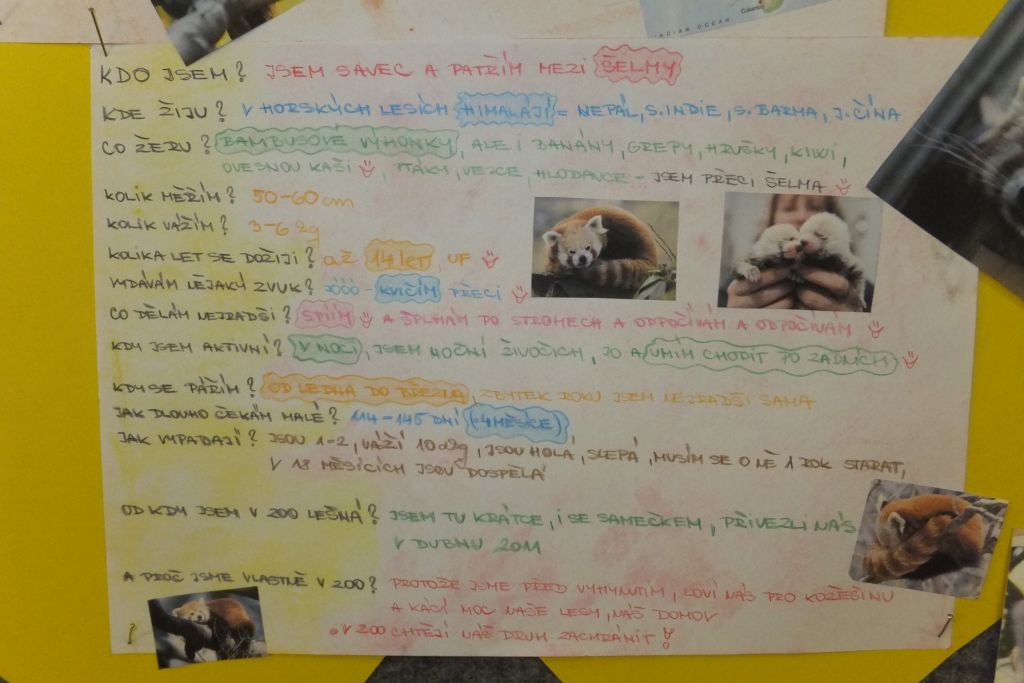 INDIAN OCEAN
KDO JSEM? JSEM SAVEC A PATŘÍM MEZI ŠELMY
KDE ŽIJU? V HORSKÝCH LESÍCH HIMALÁJÍ = NEPÁL, S. INDIE, S. BARMA, J. ČÍNA
CO ŽERU? BAMBUSOVÉ VÝHONKY, ALE I BANÁNY, GREPY, HRUŠKY, KIWI,
OVESNOU KAŠI, PTÁKY, VEJCE, HLODAVCE - JSEM PŘECI ŠELMA
KOLIK MĚŘÍM? 50-60 cm
KOLIK VÁŽÍM? 3-6 kg
KOLIKA LET SE DOŽIJI? až 14 let, UF
VYDÁVÁM NĚJAKÝ ZVUK? JÓÓÓ - KVIČÍM PŘECI
CO DĚLÁM NEJRADŠI? SPÍÍM A ŠPLHÁM PO STROMECH A ODPOČÍVÁM A ODPOČÍVÁM
KDY JSEM AKTIVNÍ? V NOCI, JSEM NOČNÍ ŽIVOČICH, JO A UMÍM CHODIT PO ZADNÍCH
KDY SE PÁŘÍM? OD LEDNA DO BŘEZNA, ZBYTEK ROKU JSEM NEJRADŠI SAMA
JAK DLOUHO ČEKÁM MALÉ? 114-145 DNÍ (-4 MĚSÍCE)
JAK VYPADAJÍ? JSOU 1-2, VÁŽÍ 10 dkg, JSOU HOLÁ, SLEPÁ, MUSÍM SE O NĚ 1 ROK STARAT,
V 18 MĚSÍCÍCH JSOU DOSPĚLÁ
OD KDY JSEM V ZOO LEŠNÁ? JSEM TU KRÁTCE, I SE SAMEČKEM, PŘIVEZLI NÁS
V DUBNU 2011
A PROČ JSME VLASTNĚ V ZOO? PROTOŽE JSME PŘED VYHYNUTÍM, LOVÍ NÁS PRO KOŽEŠINU
A KÁCÍ MOC NAŠE LESY, NÁŠ DOMOV
• V ZOO CHTĚJÍ NÁŠ DRUH ZACHRÁNIT!